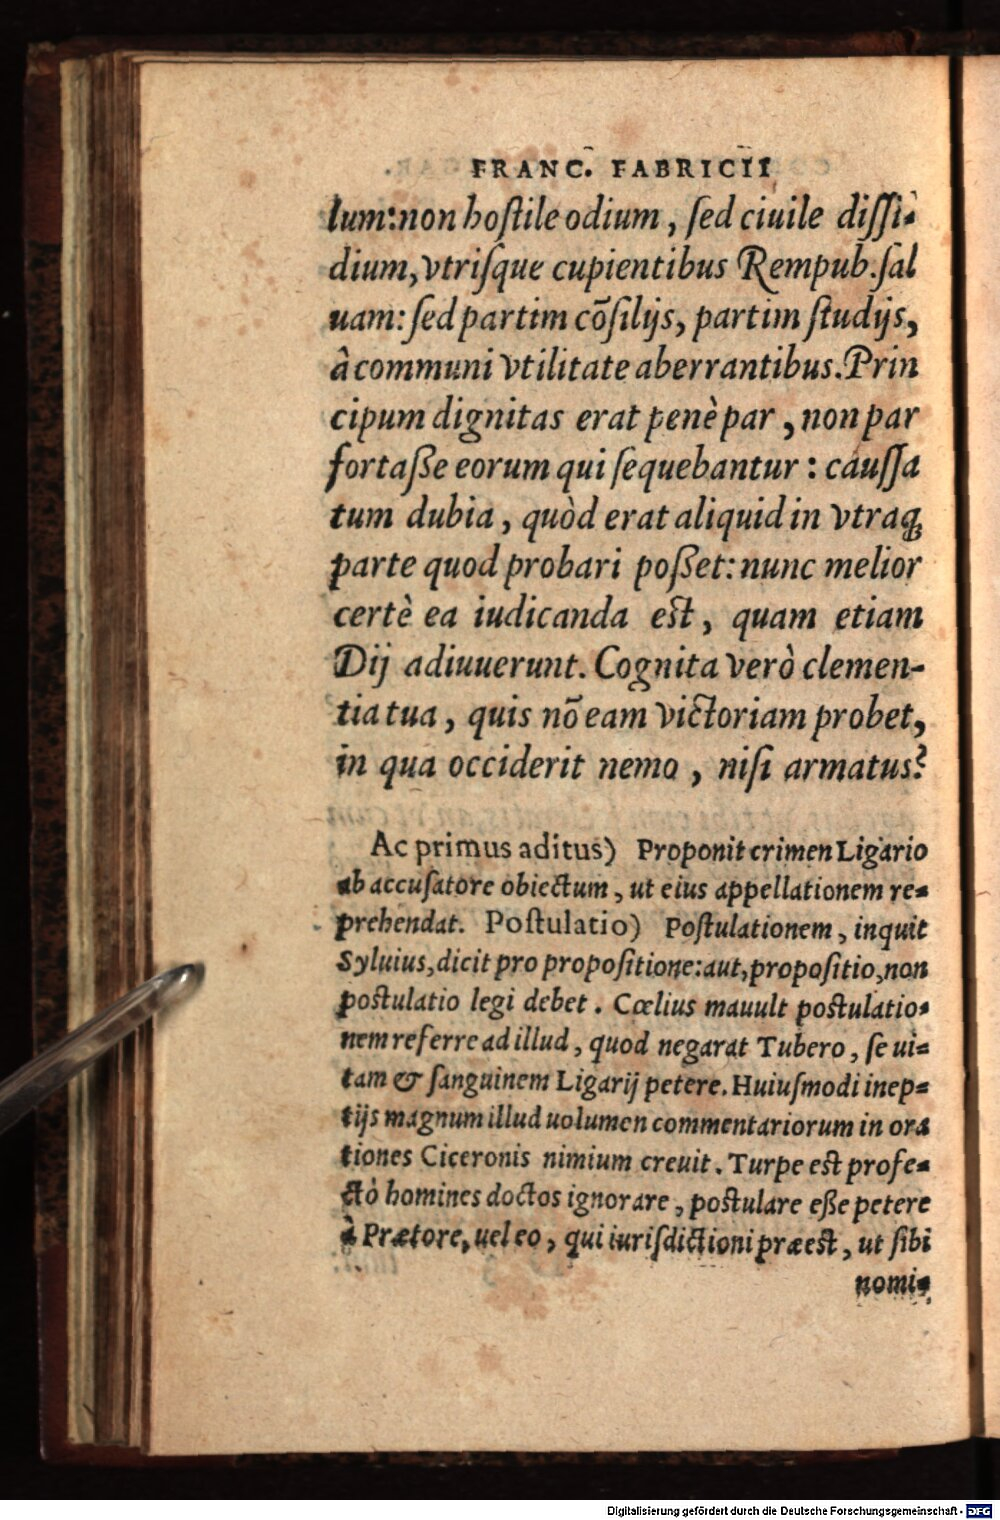 FRANC. FABRICII
lum: non hoſtile odium, ſed ciuile diſſi-
dium, vtriſque cupientibus Rempub. ſal
uam: ſed partim cõſilijs, partim ſtudijs,
à communi vtilitate aberrantibus. Prin
cipum dignitas erat penè par, non par
fortaße eorum qui ſequebantur: cauſſa
tum dubia, quòd erat aliquid in vtraq;
parte quod probari poßet: nunc melior
certè ea iudicanda eſt, quam etiam
Dij adiuuerunt. Cognita verò clemen-
tia tua, quis nõ eam victoriam probet,
in qua occiderit nemo, niſi armatus?
Ac primus aditus) Proponit crimen Ligario
ab accuſatore obiectum, ut eius appellationem re-
prehendat. Poſtulatio) Poſtulationem, inquit
Syluius, dicit pro propoſitione: aut, propoſitio, non
poſtulatio legi debet. Cœlius mauult poſtulatio-
nem referre ad illud, quod negarat Tubero, ſe ui-
tam & ſanguinem Ligarij petere. Huiuſmodi inep-
tijs magnum illud uolumen commentariorum in ora
tiones Ciceronis nimium creuit. Turpe eſt profe-
ctò homines doctos ignorare, poſtulare eße petere
à Prætore, uel eo, qui iuriſdictioni præeſt, ut ſibi
nomi-
Digitalisierung gefördert durch die Deutsche Forschungsgemeinschaft - DFG